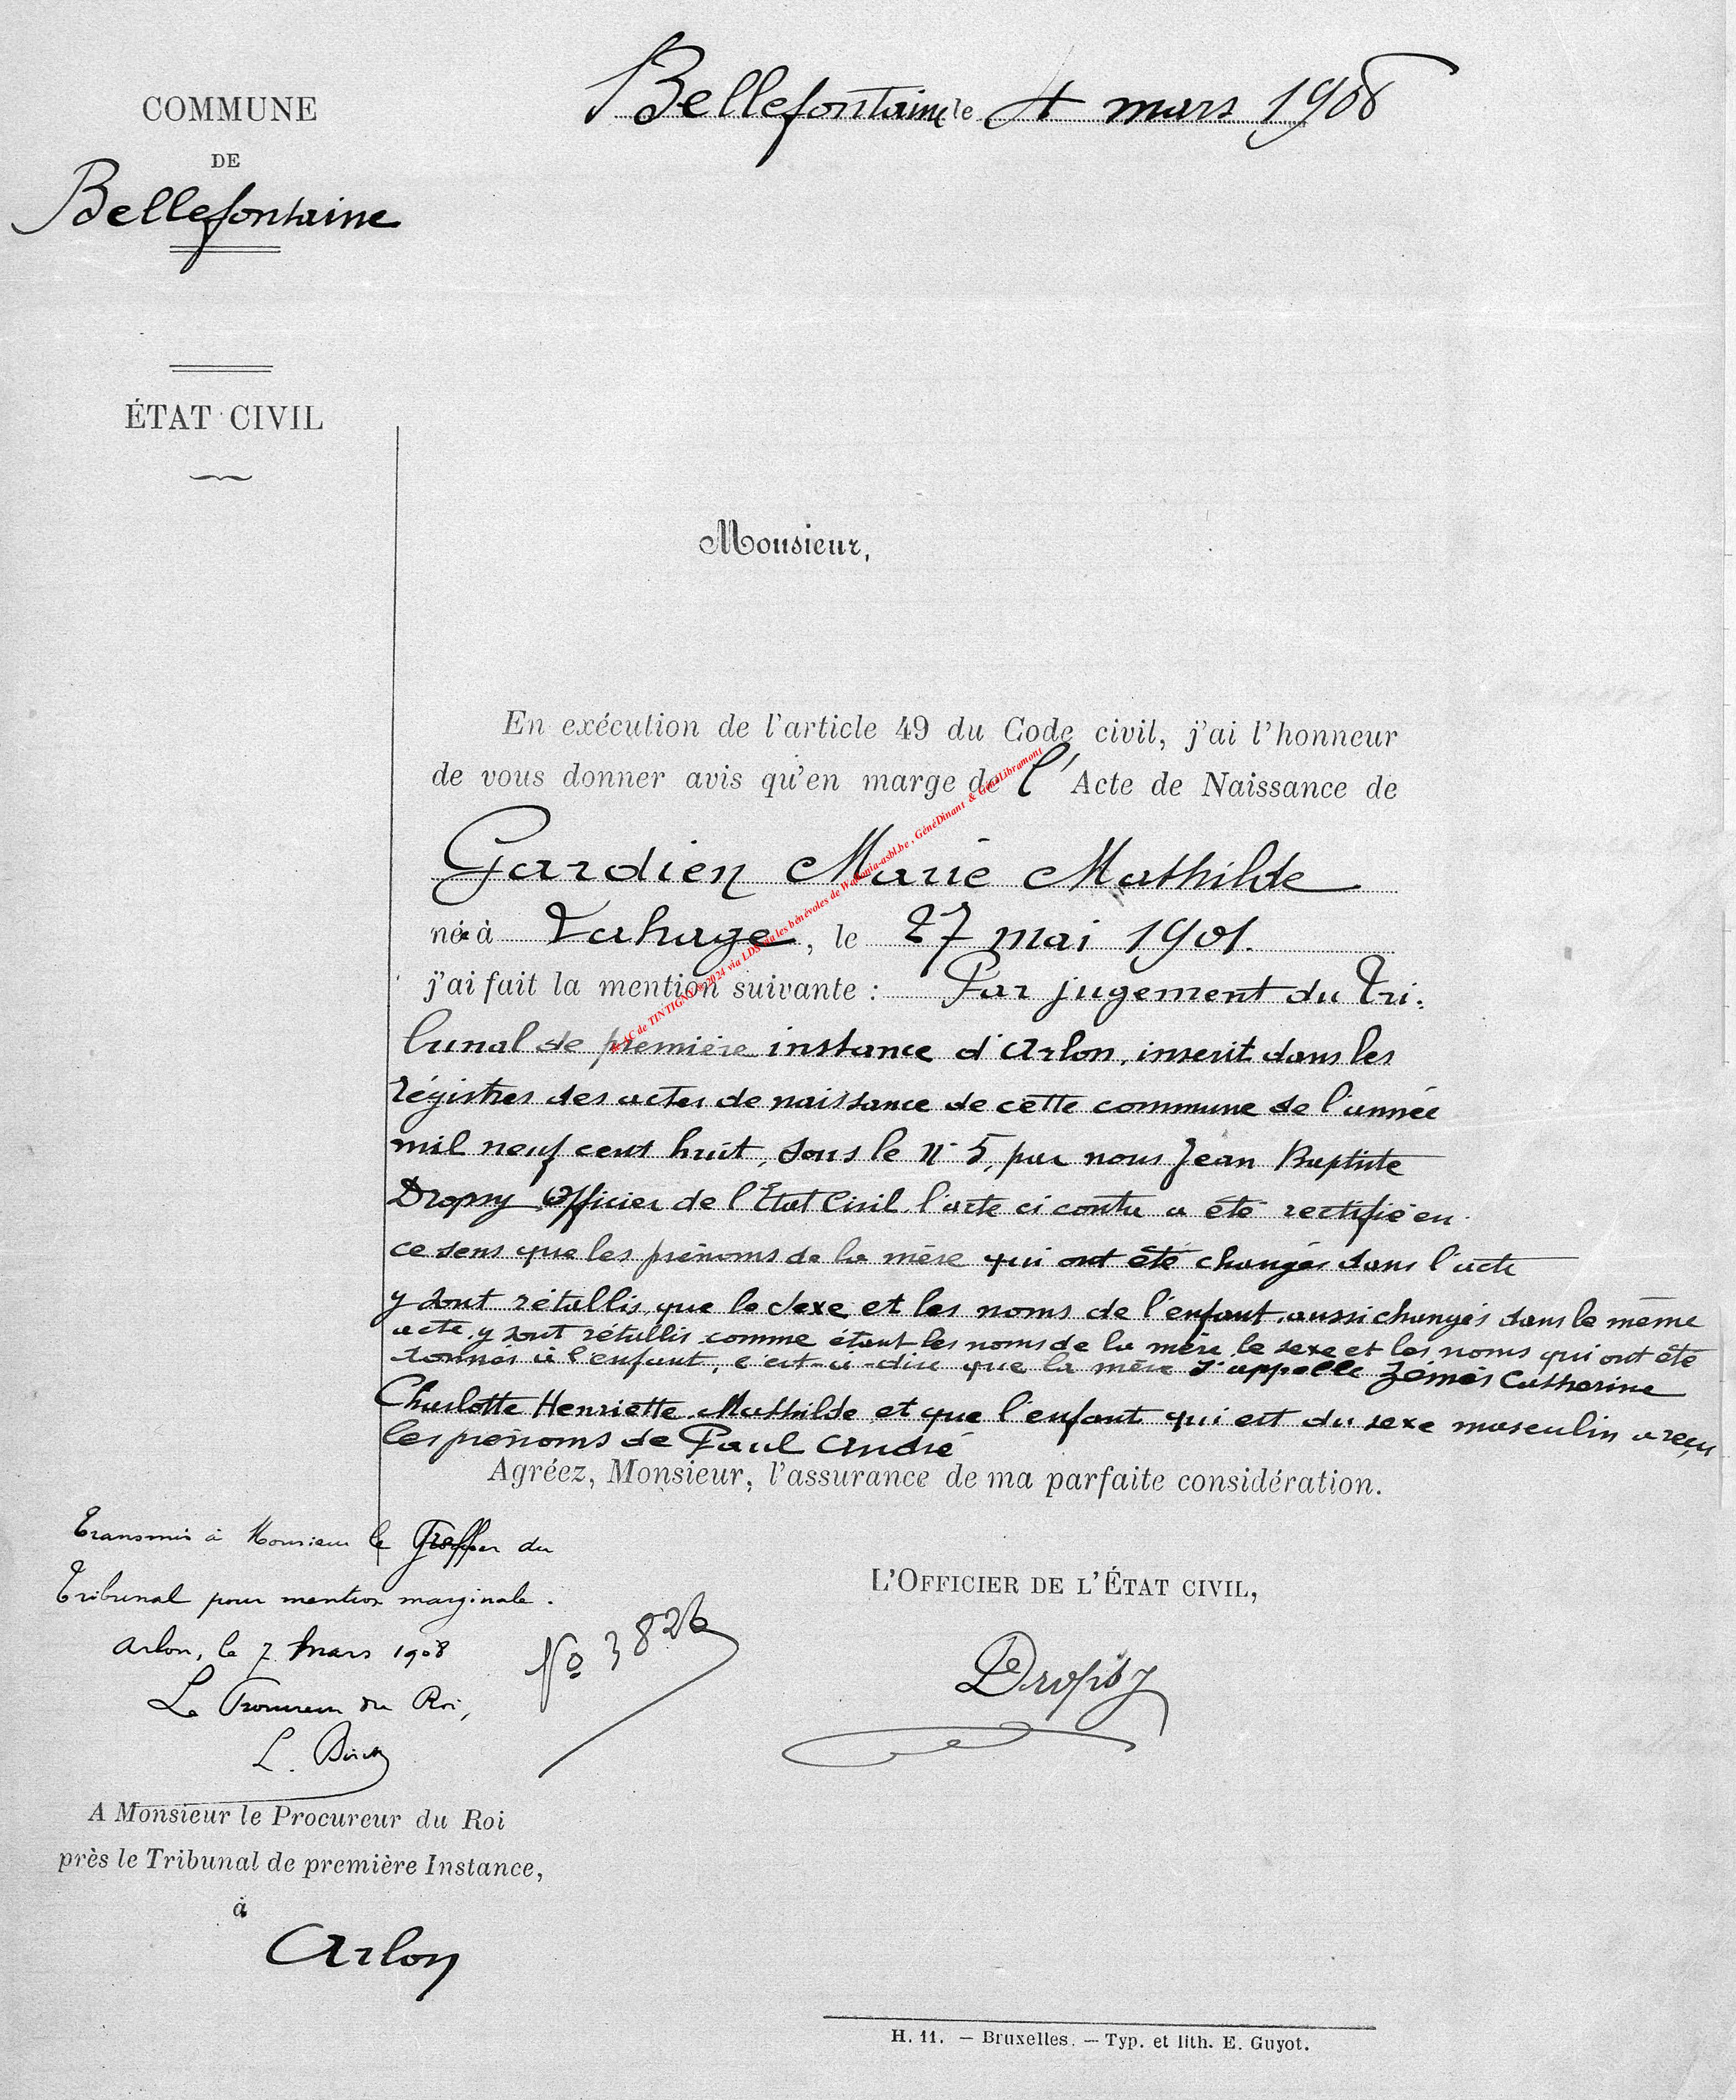 COMMUNE
DE
Bellefontaine
ÉTAT CIVIL
Bellefontaine le 4 mars 1908
Monsieur,
En exécution de l'article 49 du Code civil, j'ai l'honneur
de vous donner avis qu'en marge de l' Acte de Naissance de
Gardien Marie Mathilde
né à Lahage, le 27 mai 1901.
j'ai fait la mention suivante : Par jugement du Tri-
bunal de première instance d'Arlon, inscrit dans les
régistres des actes de naissance de cette commune de l'année
mil neuf cent huit, sous le N° 5, par nous Jean Baptiste
Dropsy Officier de l'Etat Civil, l'acte ci contre a été rectifié en
ce sens que les prénoms de la mère qui ont été changés dans l'acte
y sont rétablis, que le sexe et les noms de l'enfant, aussi changés dans le même
acte, y sont rétablis comme étant les noms de la mère le sexe et les noms qui ont été
donnés à l'enfant, c'est-à-dire que la mère s'appelle Zémès Catherine
Charlotte Henriette Mathilde et que l'enfant qui est du sexe masculin a reçu
les prénoms de Paul André
Agréez, Monsieur, l'assurance de ma parfaite considération.
L'OFFICIER DE L'ÉTAT CIVIL,
Dropsy
Transmis à Monsieur le Greffier du
Tribunal pour mention marginale.
Arlon, le 7 Mars 1908
Le Procureur du Roi,
L.
No 3826
A Monsieur le Procureur du Roi
près le Tribunal de première Instance,
à
Arlon
H. 11. — Bruxelles. — Typ. et lith. E. Guyot.
AC de TINTIGNY © 2024 via LDS via les bénévoles de Wallonia-asbl.be , GénéDinant & GénéLibramont